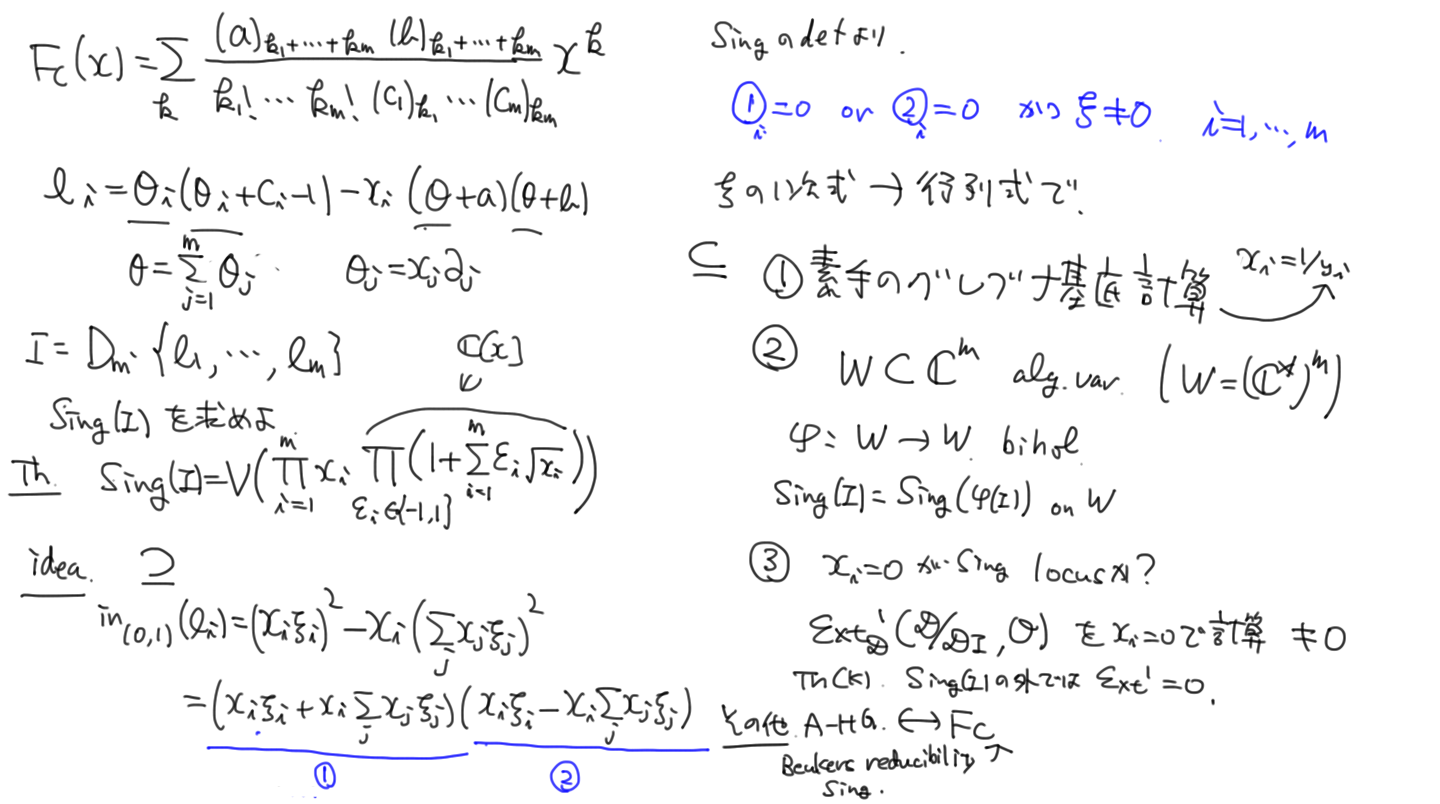 F_C(x) = Σ_k (a)_{k_1+⋯+k_m} (b)_{k_1+⋯+k_m} / k_1! ⋯ k_m! (c_1)_{k_1} ⋯ (c_m)_{k_m} x^k
l_i = θ_i(θ_i + c_i - 1) - x_i (θ+a)(θ+b)
θ = Σ_{j=1}^m θ_j θ_j = x_j ∂_j
I = D_m・{l_1, ⋯, l_m} ℂ[x]
Sing(I) を求めよ.
Th. Sing(I) = V(∏_{i=1}^m x_i ∏_{ε_i∈{-1,1}} (1 + Σ_{i=1}^m ε_i √x_i))
idea. ⊇
in_{(0,1)}(l_i) = (x_i ξ_i)^2 - x_i (Σ_j x_j ξ_j)^2
= (x_i ξ_i + x_i Σ_j x_j ξ_j)(x_i ξ_i - x_i Σ_j x_j ξ_j)
① ②
Sing の def より.
①_i = 0 or ②_i = 0 かつ ξ ≠ 0. i=1, ⋯, m
ξ の 1次式 → 行列式で.
⊆ ① 素手のグレブナ基底計算 x_i = 1/y_i
② W ⊂ ℂ^m alg. var. (W = (ℂ^×)^m)
φ: W → W bihol.
Sing(I) = Sing(φ(I)) on W
③ x_i = 0 が Sing locus か?
Ext^1_𝒟(𝒟/𝒟I, 𝒪) を x_i = 0 で計算 ≠ 0
Th(K). Sing(I) の外では Ext^1 = 0.
その他. A-HG. ↔ F_C
Beukers reducibility ↗
Sing.